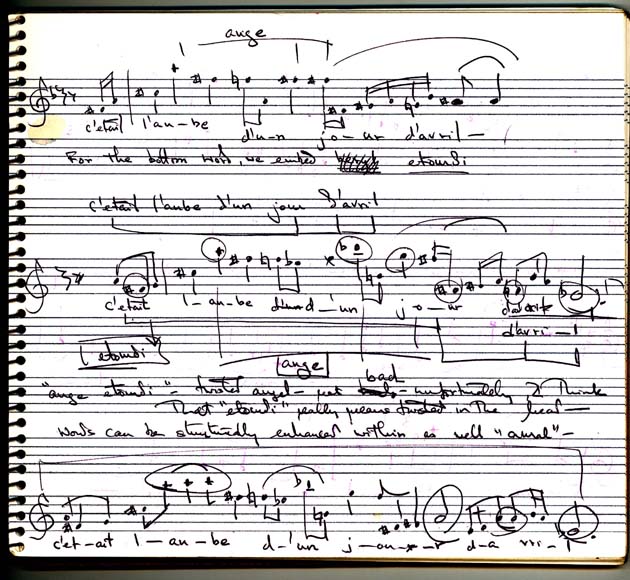 ange
c'etait l'au-be d'u-n jo-ur d'avril-
For the bottom word, we embed etourdi
c'etait l'aube d'un jour d'avril
c'etait l-au-be d'un j-o-ur
d'avri-l
etourdi
ange
"ange etourdi" - twisted angel - not bad - unfortunately I think
That "etourdi" really means twisted in the head -
words can be structurally enhanced within as well "aural" -
c'et-ait l-au-be d-'un j-ou-r d-a vri-l